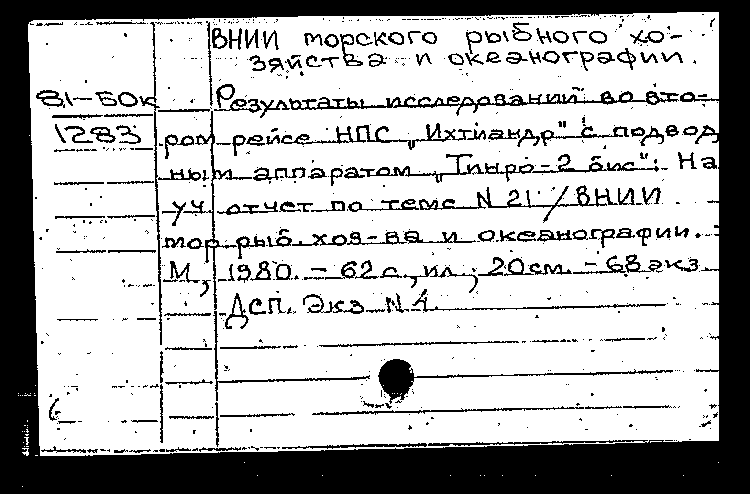 ВНИИ морского рыбного хо-
зяйства и океанографии.
81-60к Результаты исследований во вто-
1283 ром рейсе НПС „Ихтиандр" с подвод
ным аппаратом „Тинро-2 бис": На
уч. отчет по теме N 21 / ВНИИ
мор. рыб. хоз-ва и океанографии. -
М, 1980. - 62 с, ил; 20см. - 68 экз
ДСП. Экз N 4.